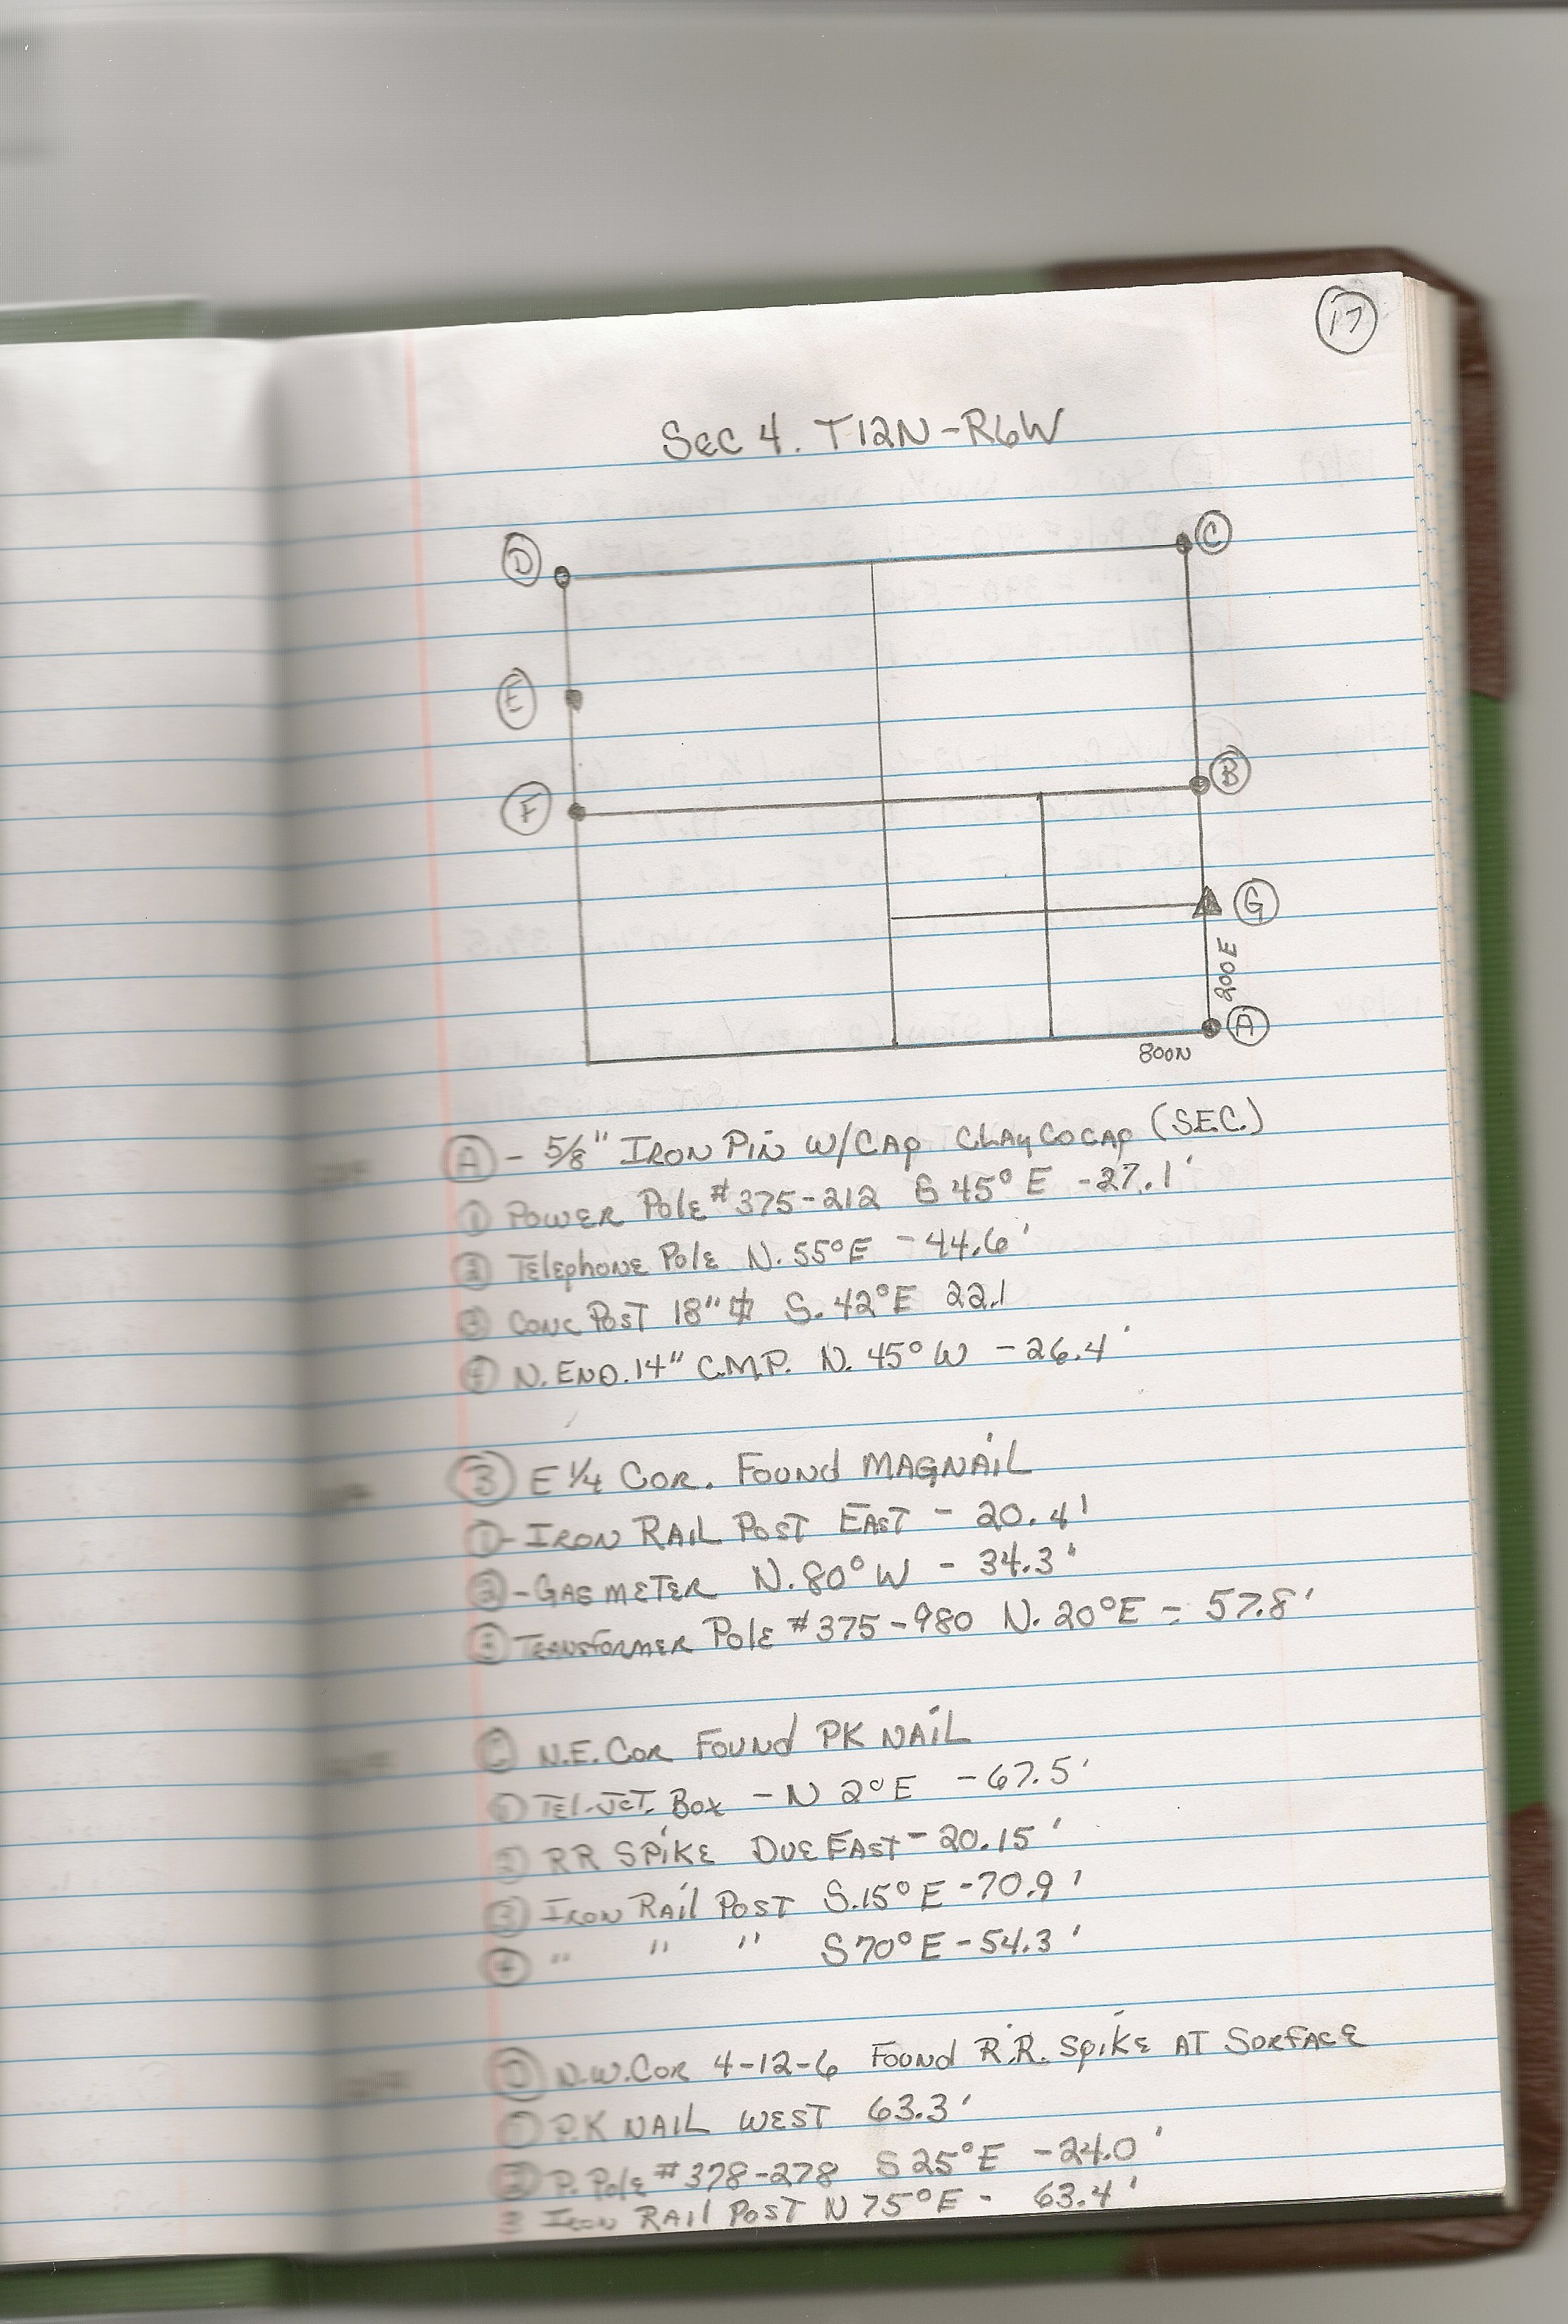 17
Sec 4. T12N-R6W
D
C
E
F
B
G
200E
A
800N
A - 5/8" IRON PIN W/CAP CLAY CO CAP (S.E.C.)
1 POWER Pole #375-212 S 45° E -27.1'
2 Telephone Pole N. 55°E -44.6'
3 CONC POST 18" S. 42°E 22.1
4 N. END. 14" C.M.P. N. 45° W - 26.4'
B E 1/4 COR. FOUND MAGNAIL
1- IRON RAIL POST EAST - 20.4'
2 - GAS METER N. 80° W - 34.3'
3 TRANSFORMER Pole #375-980 N. 20°E = 57.8'
C N.E. COR FOUND PK NAIL
1 TEL-JCT. BOX - N 2°E -67.5'
2 RR SPIKE DUE EAST - 20.15'
3 IRON RAIL POST S. 15° E -70.9'
4 " " " S 70° E - 54.3'
D N.W. COR 4-12-6 FOUND R.R. Spike AT SURFACE
1 P.K NAIL WEST 63.3'
2 P. Pole #378-278 S 25°E -24.0'
3 IRON RAIL POST N 75°E - 63.4'